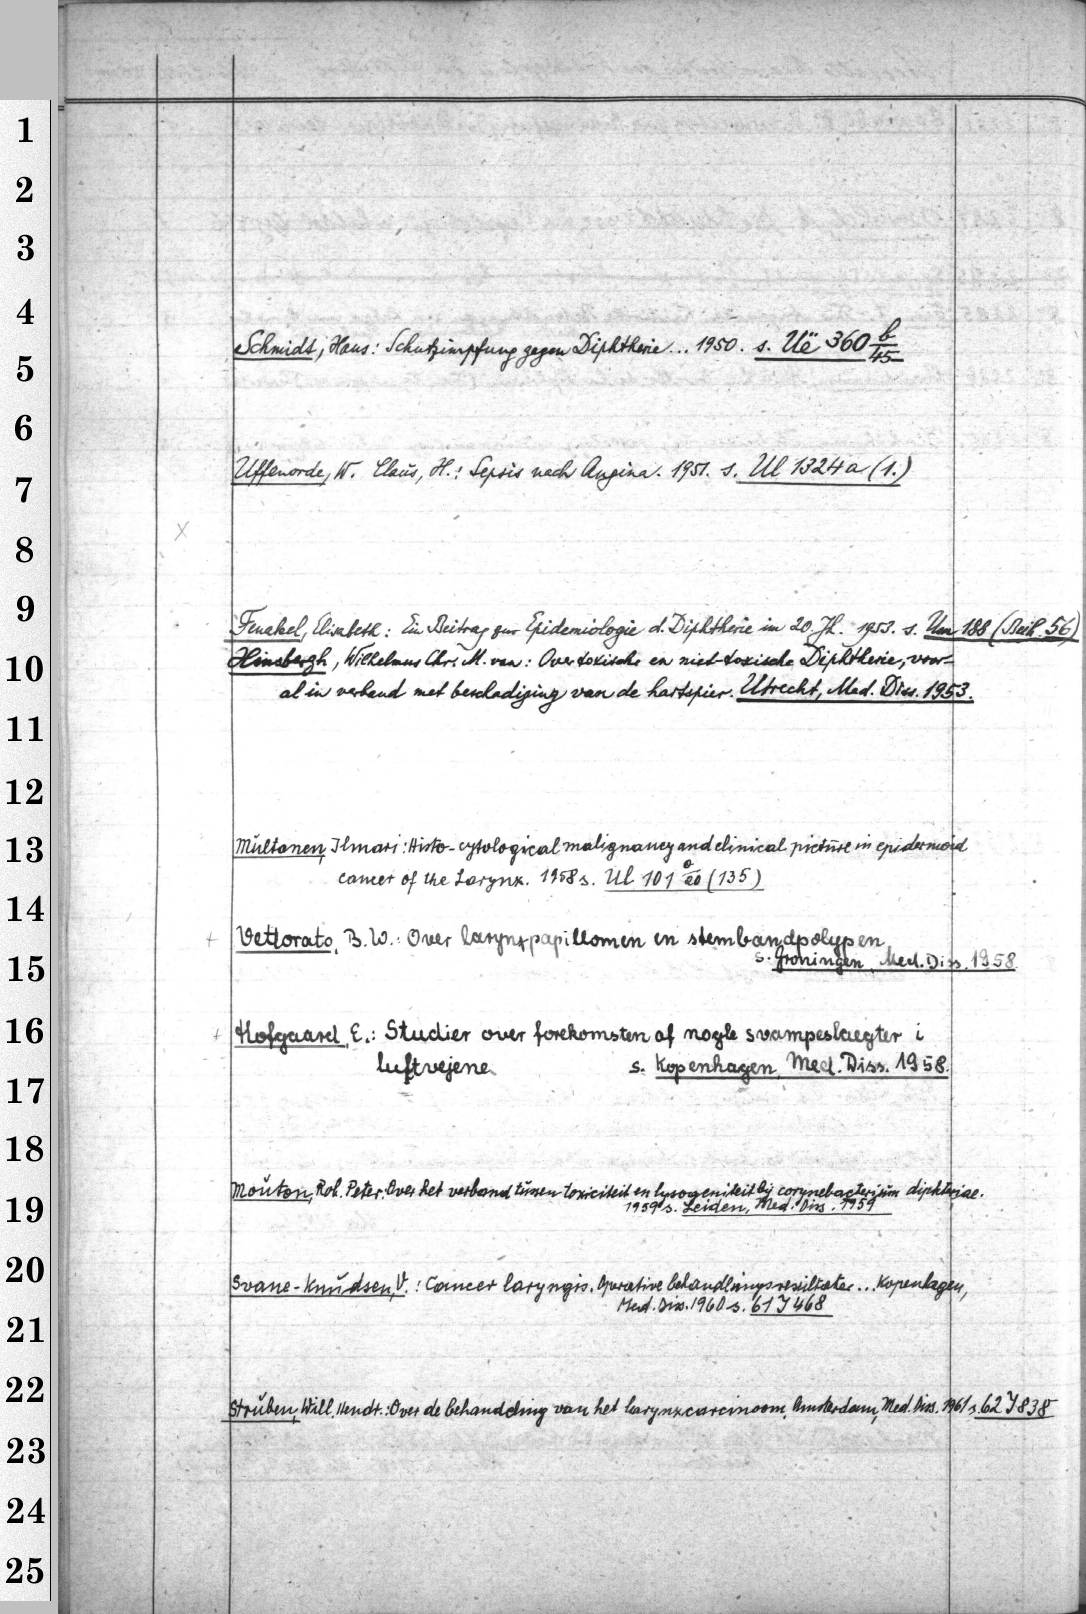 1
2
3
4
Schmidt, Hans: Schutzimpfung gegen Diphtherie... 1950. s. Uë 360 b/45
5
6
Uffenorde, W. Claus, H.: Sepsis nach Angina. 1951. s. Ul 1324a (1.)
7
X
8
9
Elisabeth: Ein Beitrag zur Epidemiologie d. Diphtherie im 20. Jh. 1953. s. Um 188 (Beih. 56)
10
Hinsbergh, Wilhelmus Chr. M. van: Over toxische en niet-toxische Diphtherie, voor-
al in verband met beschadiging van de hartspier. Utrecht, Med. Diss. 1953.
11
12
13
Multanen, Ilmari: Histo-cytological malignancy and clinical picture in epidermoid
cancer of the Larynx. 1958 s. Ul 101 (135)
14
+ Vettorato, B. W.: Over larynxpapillomen en stembandpolypen
15
s. Groningen, Med. Diss. 1958
16
+ Hofgaard, E.: Studier over forekomsten af nogle svampeslaegter i
luftvejene s. Kopenhagen, Med. Diss. 1958.
17
18
Mouton, Rob. Peter: Over het verband tussen toxiciteit en lysogeniteit bij corynebacterium diphteriae.
19
1959 s. Leiden, Med. Diss. 1959
20
Svane-Knudsen, V.: Cancer laryngis. Operative behandlingsresultater... Kopenhagen,
Med. Diss. 1960 s. 61 J 468
21
22
Struben, Will. Hendr.: Over de behandeling van het larynxcarcinoom. Amsterdam, Med. Diss. 1961 s. 62 J 838
23
24
25